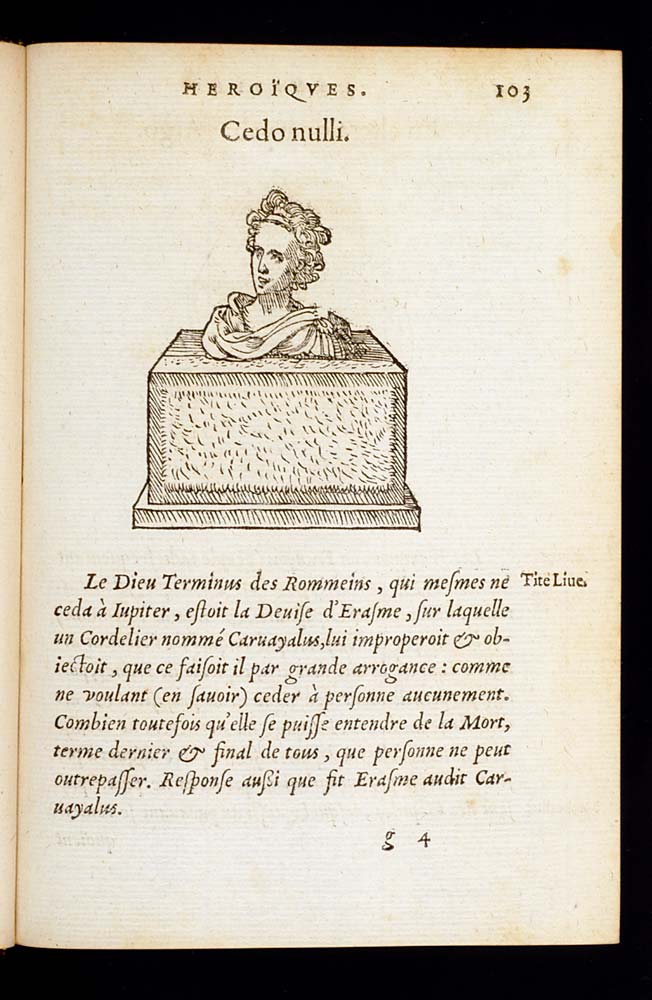 HEROÏQVES. 103
Cedo nulli.
Le Dieu Terminus des Rommeins, qui meſmes ne Tite Liue.
ceda à Iupiter, eſtoit la Deuiſe d'Eraſme, ſur laquelle
un Cordelier nommé Caruayalus, lui improperoit & ob-
iectoit, que ce faiſoit il par grande arrogance : comme
ne voulant (en ſauoir) ceder à perſonne aucunement.
Combien toutefois qu'elle ſe puiſſe entendre de la Mort,
terme dernier & final de tous, que perſonne ne peut
outrepaſſer. Reſponſe außi que fit Eraſme audit Car-
uayalus.
g 4